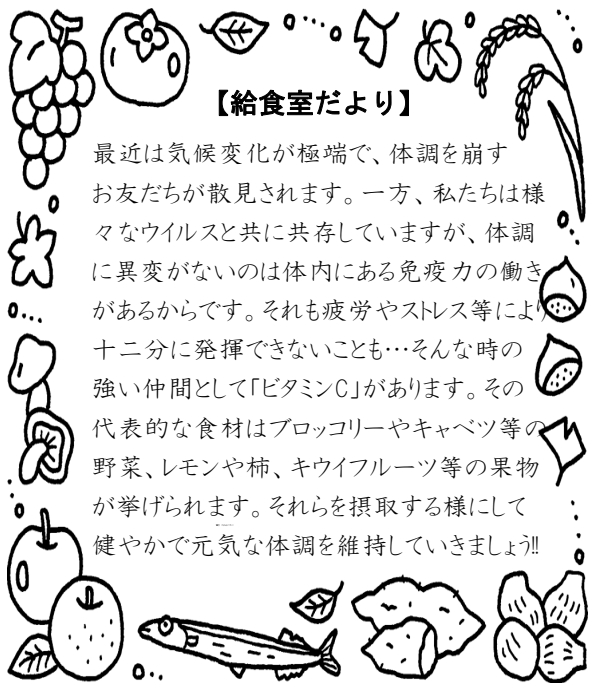 【給食室だより】
最近は気候変化が極端で、体調を崩す
お友だちが散見されます。一方、私たちは様
々なウイルスと共に共存していますが、体調
に異変がないのは体内にある免疫力の働き
があるからです。それも疲労やストレス等により
十二分に発揮できないことも…そんな時の
強い仲間として「ビタミンC」があります。その
代表的な食材はブロッコリーやキャベツ等の
野菜、レモンや柿、キウイフルーツ等の果物
が挙げられます。それらを摂取する様にして
健やかで元気な体調を維持していきましょう!!